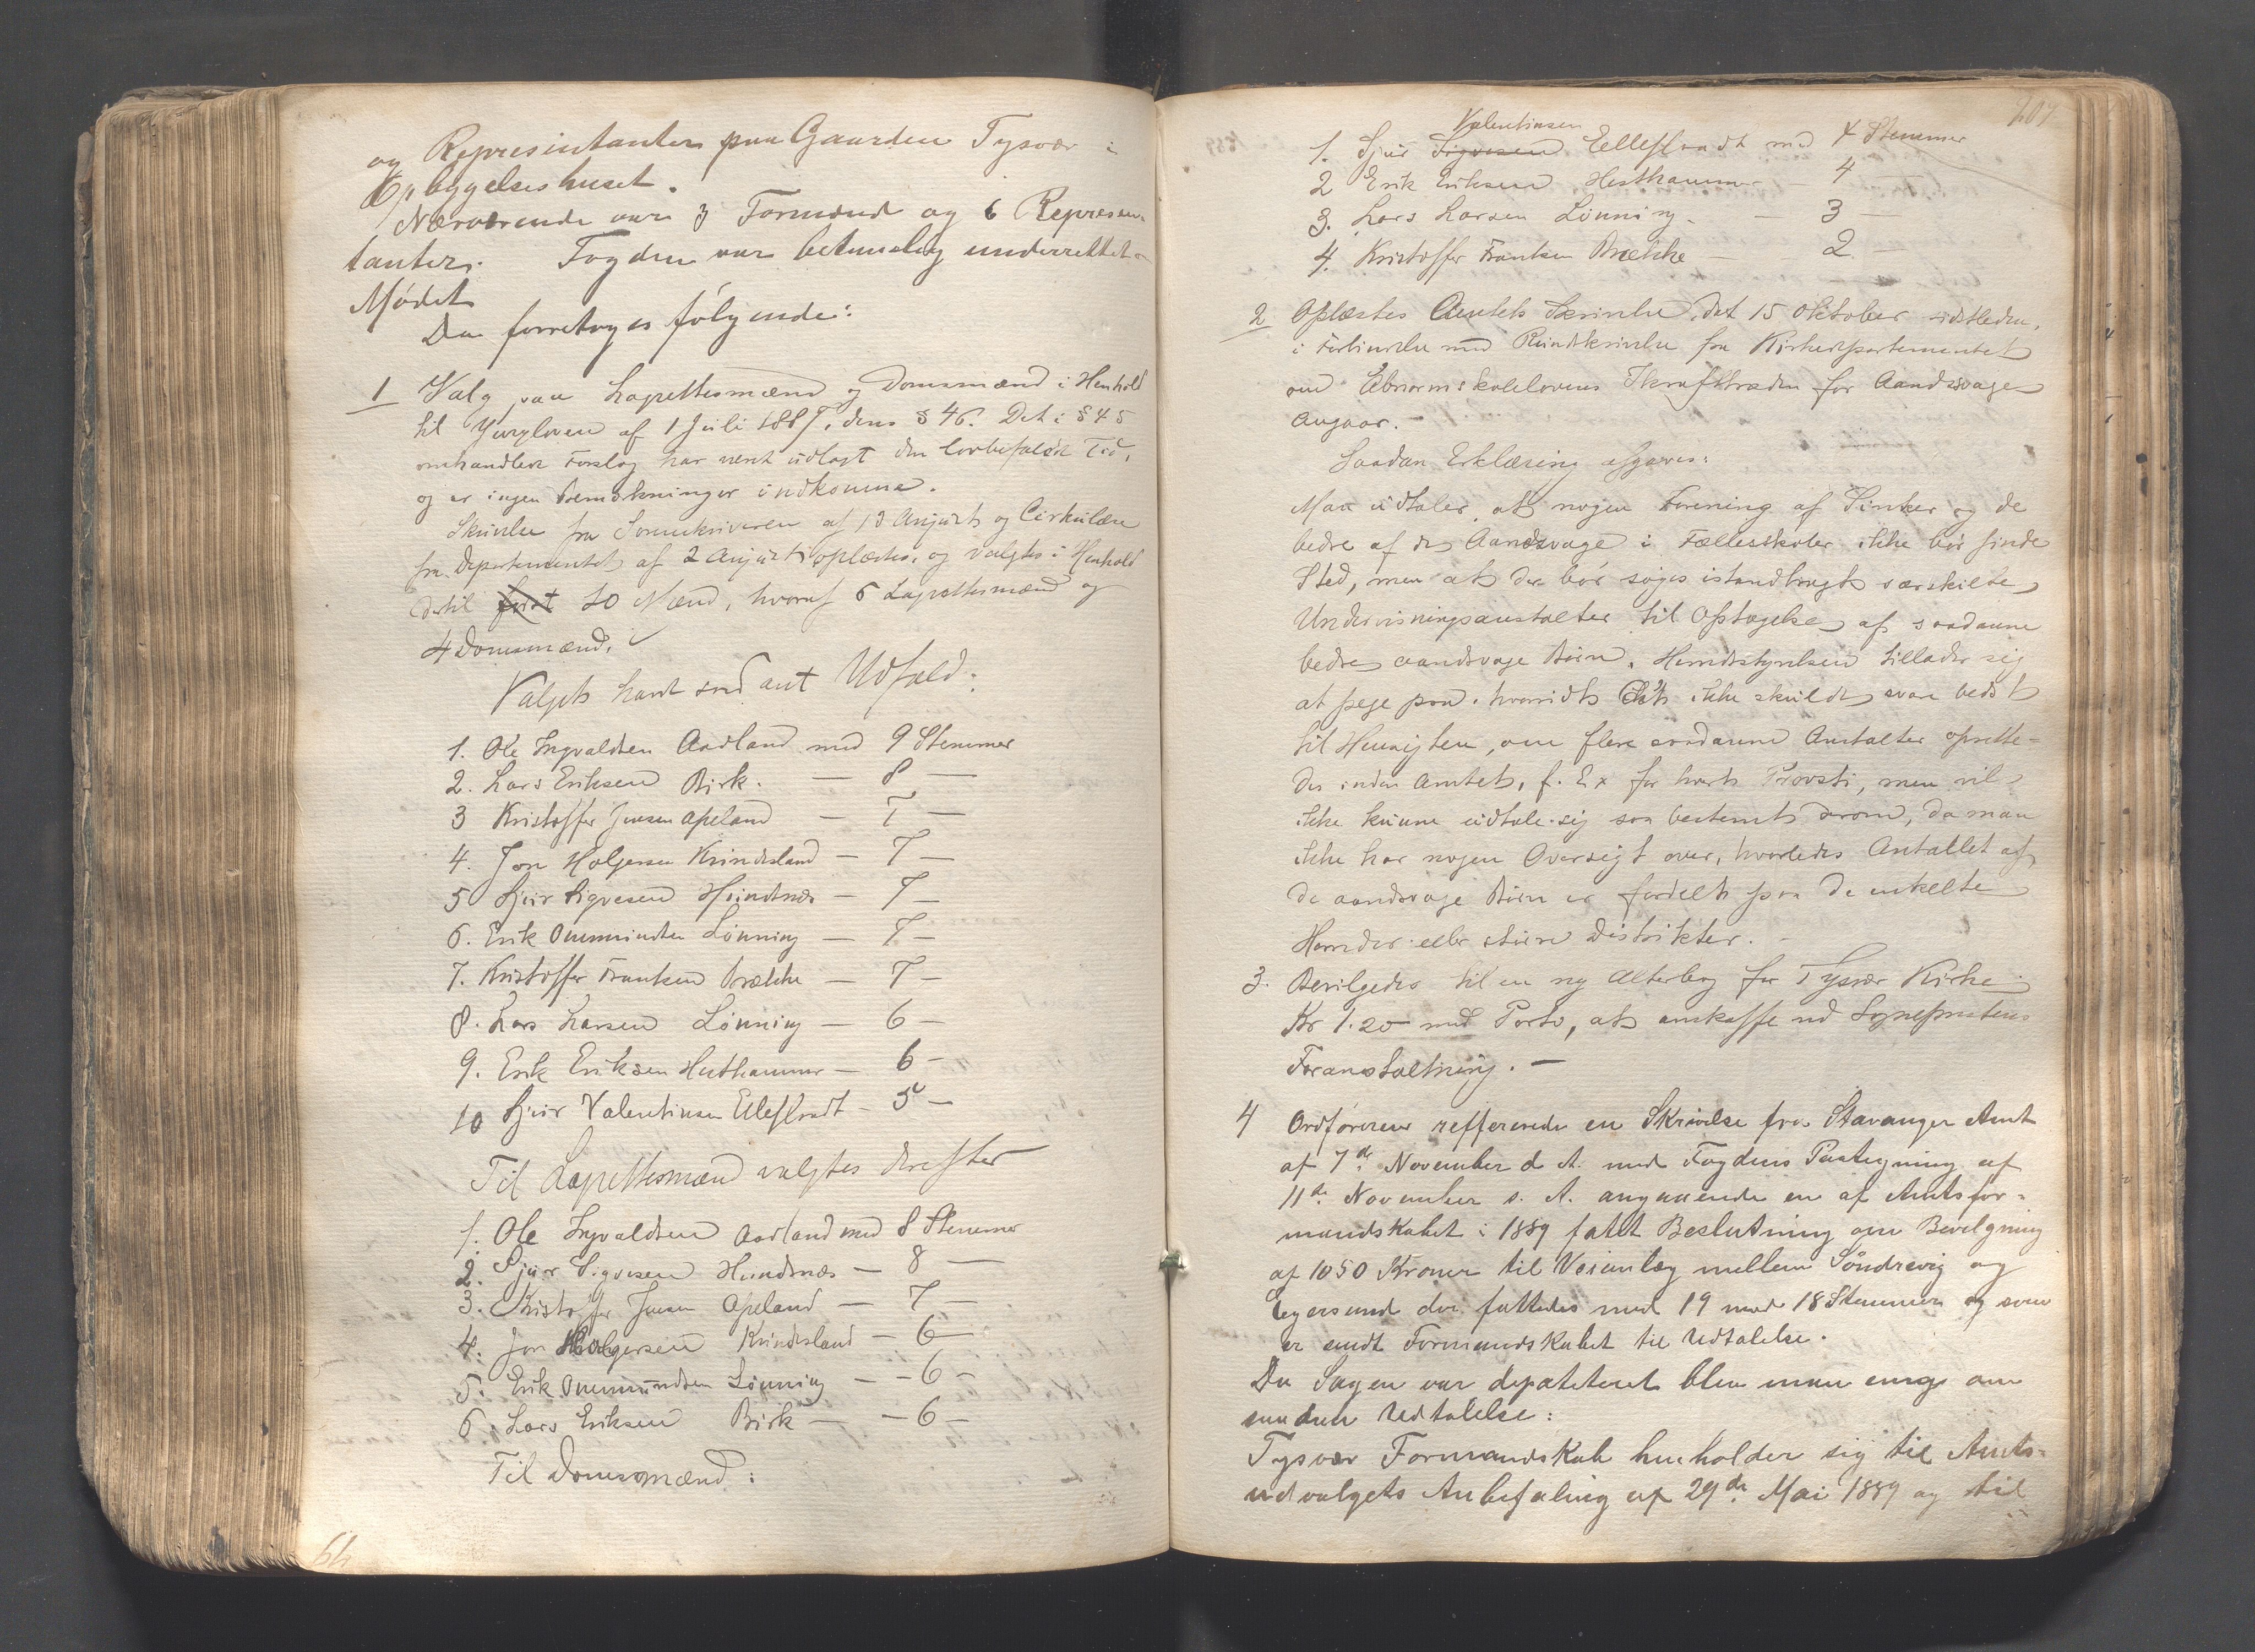 og Representanter paa Gaarden Tysvær i
Opbyggelseshuset.
Nærværende vare 3 Formænd og 6 Represen-
tanter. Fogden var betimelig underrettet om
Mødet
Da forretoges følgende:
1 Valg paa Lagrettesmænd og Domsmænd i Henhold
til Juryloven af 1 Juli 1887, dens § 46. Det i § 45
omhandlede Forslag har været udlagt den lovbefalede Tid,
og er ingen Bemærkninger indkomne.
Skrivelse fra Sorenskriveren af 13 August og Cirkulære
fra Departementet af 2 August oplæstes, og valgtes i Henhold
dertil 10 Mænd, hvoraf 6 Lagrettesmænd og
4 Domsmænd.
Valgets havde saadant Udfald:
1. Ole Ingvaldsen Aadland med 9 Stemmer
2. Lars Eriksen Birk. — 8 —
3 Kristoffer Jensen Apeland — 7 —
4. Jon Holgersen Krindesland — 7 —
5 Sjur Sigvesen Hundsnæs — 7 —
6. Erik Ommundsen Lønning — 7 —
7. Kristoffer Frantsen Brække — 7 —
8. Lars Larsen Lønning — 6 —
9. Erik Eriksen Hesthammer — 6 —
10 Sjur Valentinsen Ellefstradt — 5 —
Til Lagrettesmænd valgtes derefter
1. Ole Ingvaldsen Aadland med 8 Stemmer
2. Sjur Sigvesen Hundsnæs — 8 —
3. Kristoffer Jensen Apeland — 7 —
4. Jon Holgersen Krindesland — 6 —
5. Erik Ommundsen Lønning — 6 —
6. Lars Eriksen Birk — 6 —
Til Domsmænd:
64
207
Valentinsen
1. Sjur Sigvesen Ellefstradt med 4 Stemmer
2 Erik Eriksen Hesthammer — 4
3. Lars Larsen Lønning — 3 —
4. Kristoffer Frantsen Brække — 2 —
2 Oplæstes Amtets Skrivelse, dat 15 Oktober sidstleden,
i Forbindelse med Rundskrivelse fra Kirkedepartementet
om Abnormskolelovens Ikrafttræden for Aandssvage
angaar.
Saadan Erklæring afgaves:
Man udtaler, at nogen Forening af Sinker og de
bedre af de Aandsvage i Fællesskoler ikke bør finde
Sted, men at der bør søges istandbragt særskilte
Undervisningsanstalter til Optagelse af saadanne
bedre aandsvage Børn. Herredstyrelsen tillader sig
at pege paa, hvorvidt det ikke skulde svare bedst
til Hensigten, om flere saadanne Anstalter oprette-
des inden Amtet, f. Ex for hvert Provsti, men vil
ikke kunne udtale sig saa bestemt derom, da man
ikke har nogen Oversigt over, hvorledes Antallet af
de aandsvage Børn er fordelt paa de enkelte
Herreder eller større Distrikter.
3. Bevilgedes til en ny Alterbog for Tysvær Kirke
Kr 1.20 med Porto, at anskaffe ved Sognepræstens
Foranstaltning. —
4 Ordføreren refererede en Skrivelse fra Stavanger Amt
af 7de November d. A. med Fogdens Paategning af
11de November s. A. angaaende en af Amtsfor-
mandskabet i 1889 fattet Beslutning om Bevilgning
af 1050 Kroner til Veianlæg mellem Søndrevig og
Egersund der fattedes med 19 mod 18 Stemmer og som
er sendt Formandskabet til Udtalelse.
Da Sagen var depateteret blev man enige om
saadan Udtalelse:
Tysvær Formandskab henholder sig til Amts-
udvalgets Anbefaling af 29de Mai 1889 og til